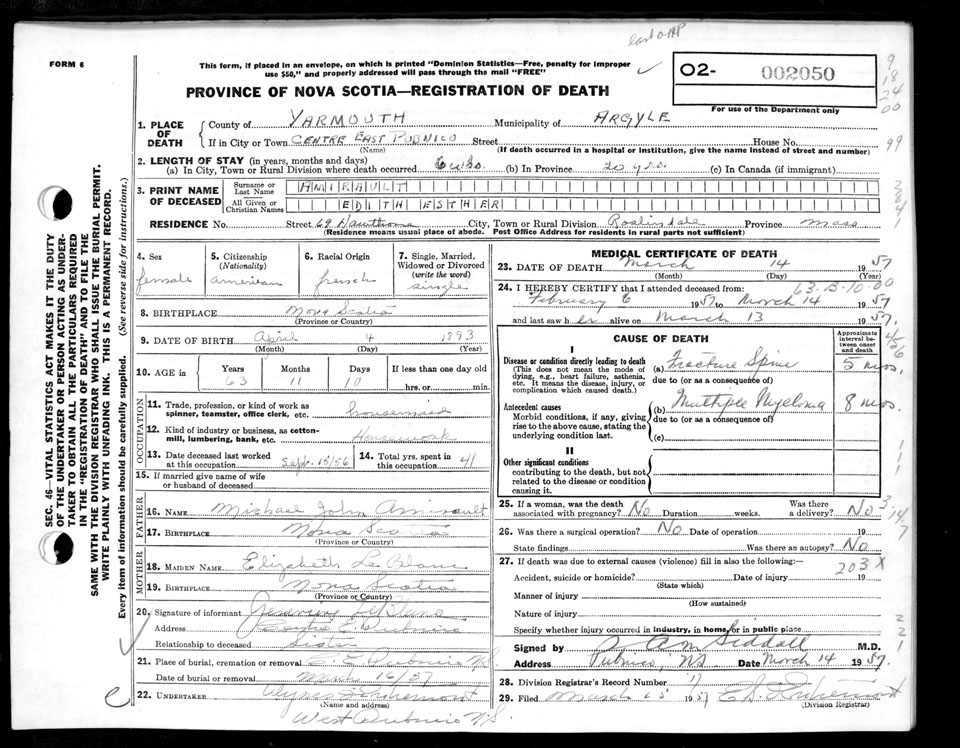 last OAP
FORM 6
This form, if placed in an envelope, on which is printed "Dominion Statistics—Free, penalty for improper
use $50," and properly addressed will pass through the mail "FREE"
O2- 002050
For use of the Department only
9
18
24
00
99
PROVINCE OF NOVA SCOTIA—REGISTRATION OF DEATH
1. PLACE OF DEATH
County of YARMOUTH Municipality of ARGYLE
If in City or Town CENTRE EAST PUBNICO Street House No.
(Name) (If death occurred in a hospital or institution, give the name instead of street and number)
2. LENGTH OF STAY (in years, months and days)
(a) In City, Town or Rural Division where death occurred 6 wks. (b) In Province 20 yrs. (c) In Canada (if immigrant)
3. PRINT NAME OF DECEASED
Surname or Last Name AMIRAULT
All Given or Christian Names EDITH ESTHER
RESIDENCE No. Street 69 Hawthorne City, Town or Rural Division Roslindale Province Mass
(Residence means usual place of abode. Post Office Address for residents in rural parts not sufficient)
4. Sex female
5. Citizenship (Nationality) american
6. Racial Origin french
7. Single, Married, Widowed or Divorced (write the word) single
8. BIRTHPLACE Nova Scotia
(Province or Country)
9. DATE OF BIRTH April 4 1893
(Month) (Day) (Year)
10. AGE in Years 63 Months 11 Days 10 If less than one day old
hrs. or min.
OCCUPATION
11. Trade, profession, or kind of work as spinner, teamster, office clerk, etc. housemaid
12. Kind of industry or business, as cotton-mill, lumbering, bank, etc. Housework
13. Date deceased last worked at this occupation Sept. 15/56
14. Total yrs. spent in this occupation 41
15. If married give name of wife or husband of deceased
FATHER
16. NAME Michael John Amirault
17. BIRTHPLACE Nova Scotia
(Province or Country)
MOTHER
18. MAIDEN NAME Elizabeth Le Blanc
19. BIRTHPLACE Nova Scotia
(Province or Country)
20. Signature of informant LeBlanc
Address Centre E. Pubnico
Relationship to deceased Sister
21. Place of burial, cremation or removal C. E. Pubnico NS
Date of burial or removal March 16/57
22. UNDERTAKER d'Entremont
(Name and address)
West Pubnico N.S.
MEDICAL CERTIFICATE OF DEATH
23. DATE OF DEATH March 14 1957
(Month) (Day) (Year)
24. I HEREBY CERTIFY that I attended deceased from: 63-B-10-00
February 6 1957 to March 14 1957
and last saw her alive on March 13 1957.
CAUSE OF DEATH
Approximate interval between onset and death
I
Disease or condition directly leading to death
(This does not mean the mode of dying, e.g., heart failure, asthenia, etc. It means the disease, injury, or complication which caused death.)
(a) Fracture Spine 2 mos.
due to (or as a consequence of)
Antecedent causes
Morbid conditions, if any, giving rise to the above cause, stating the underlying condition last.
(b) Multiple Myeloma 8 mos.
due to (or as a consequence of)
(c)
II
Other significant conditions
contributing to the death, but not related to the disease or condition causing it.
25. If a woman, was the death associated with pregnancy? No Duration weeks. Was there a delivery? No
26. Was there a surgical operation? No Date of operation 19
State findings Was there an autopsy? No
27. If death was due to external causes (violence) fill in also the following:— 203X
Accident, suicide or homicide? Date of injury 19
(State which)
Manner of injury
(How sustained)
Nature of injury
Specify whether injury occurred in industry, in home, or in public place
Signed by Siddall M.D.
Address Pubnico, NS Date March 14 1957.
28. Division Registrar's Record Number 7
29. Filed March 15 1957 d'Entremont
(Division Registrar)
SEC. 46—VITAL STATISTICS ACT MAKES IT THE DUTY
OF THE UNDERTAKER OR PERSON ACTING AS UNDER-
TAKER TO OBTAIN ALL THE PARTICULARS REQUIRED
IN THE "REGISTRATION OF DEATH" AND TO FILE THE
SAME WITH THE DIVISION REGISTRAR WHO SHALL ISSUE THE BURIAL PERMIT.
WRITE PLAINLY WITH UNFADING INK. THIS IS A PERMANENT RECORD.
Every item of information should be carefully supplied. (See reverse side for instructions.)